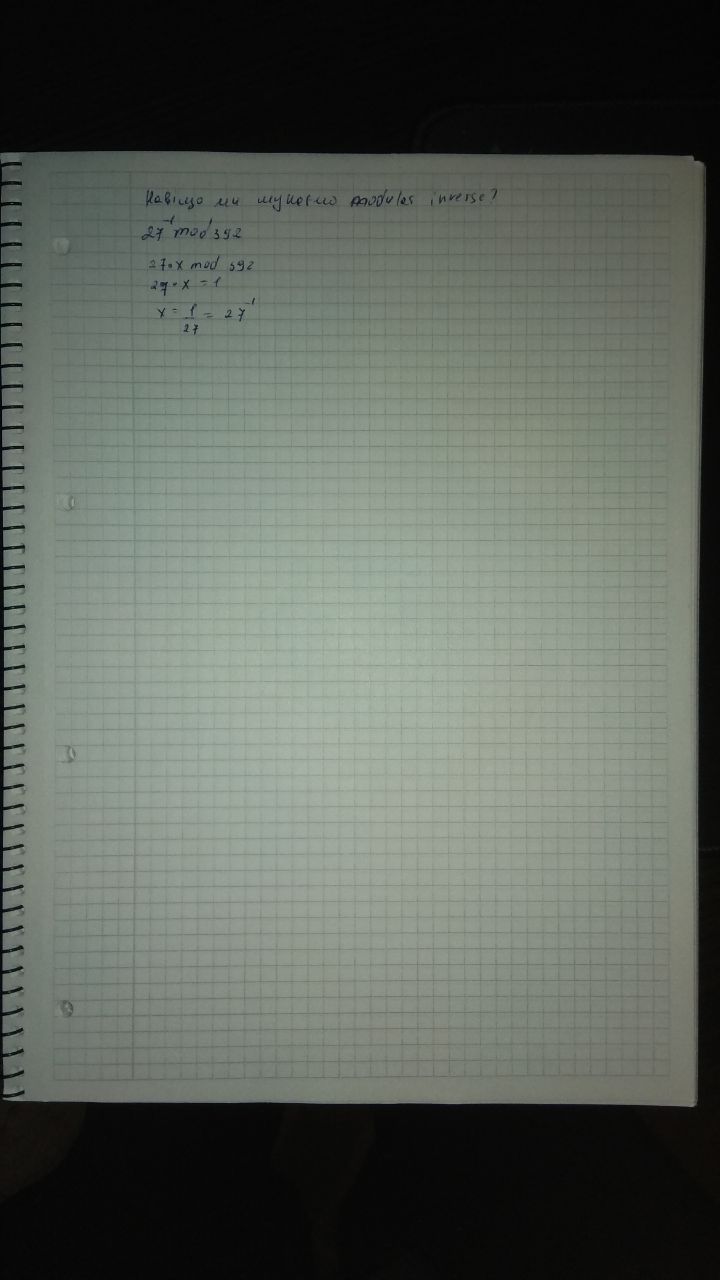 Навіщо ми шукаємо modular inverse?
27⁻¹ mod 392
27·x mod 392
27·x = 1
x = 1/27 = 27⁻¹